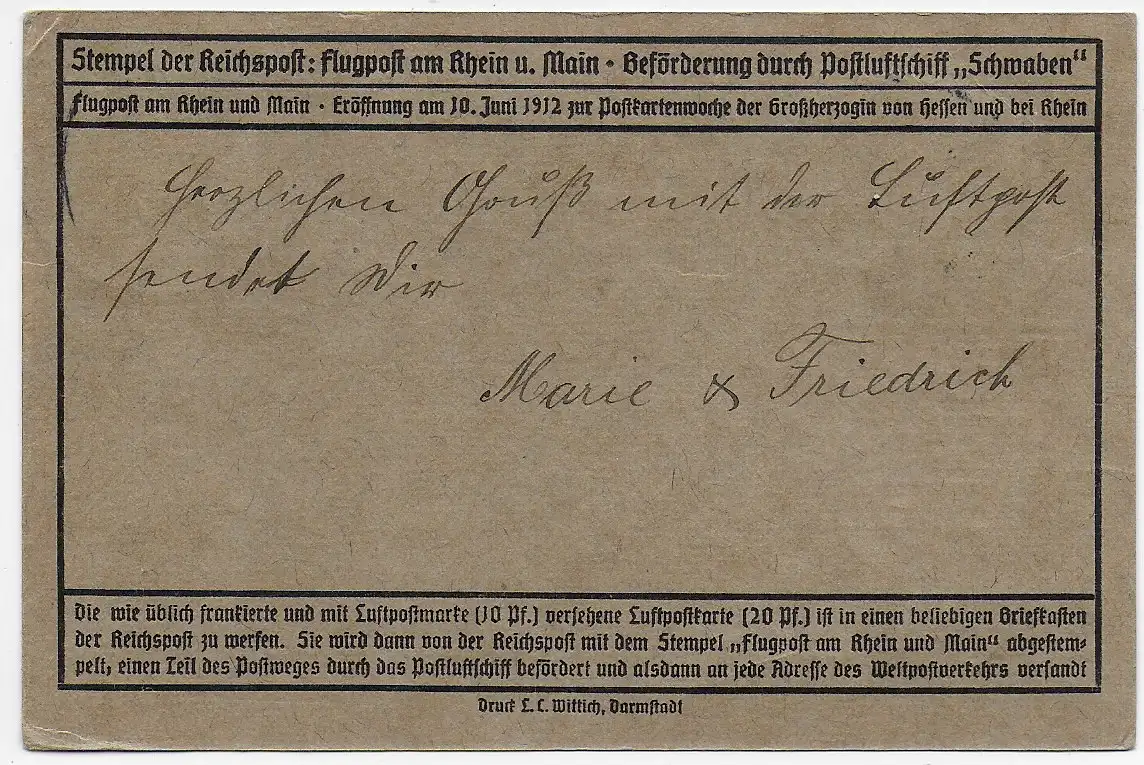 Stempel der Reichspost: Flugpost am Rhein u. Main · Beförderung durch Postluftschiff „Schwaben“
Flugpost am Rhein und Main · Eröffnung am 10. Juni 1912 zur Postkartenwoche der Großherzogin von Hessen und bei Rhein
Herzlichen Gruß mit der Luftpost
sendet Dir
Marie & Friedrich
Die wie üblich frankierte und mit Luftpostmarke (10 Pf.) versehene Luftpostkarte (20 Pf.) ist in einen beliebigen Briefkasten
der Reichspost zu werfen. Sie wird dann von der Reichspost mit dem Stempel „Flugpost am Rhein und Main“ abgestem-
pelt, einen Teil des Postweges durch das Postluftschiff befördert und alsdann an jede Adresse des Weltpostverkehrs versandt
Druck L. C. Wittich, Darmstadt